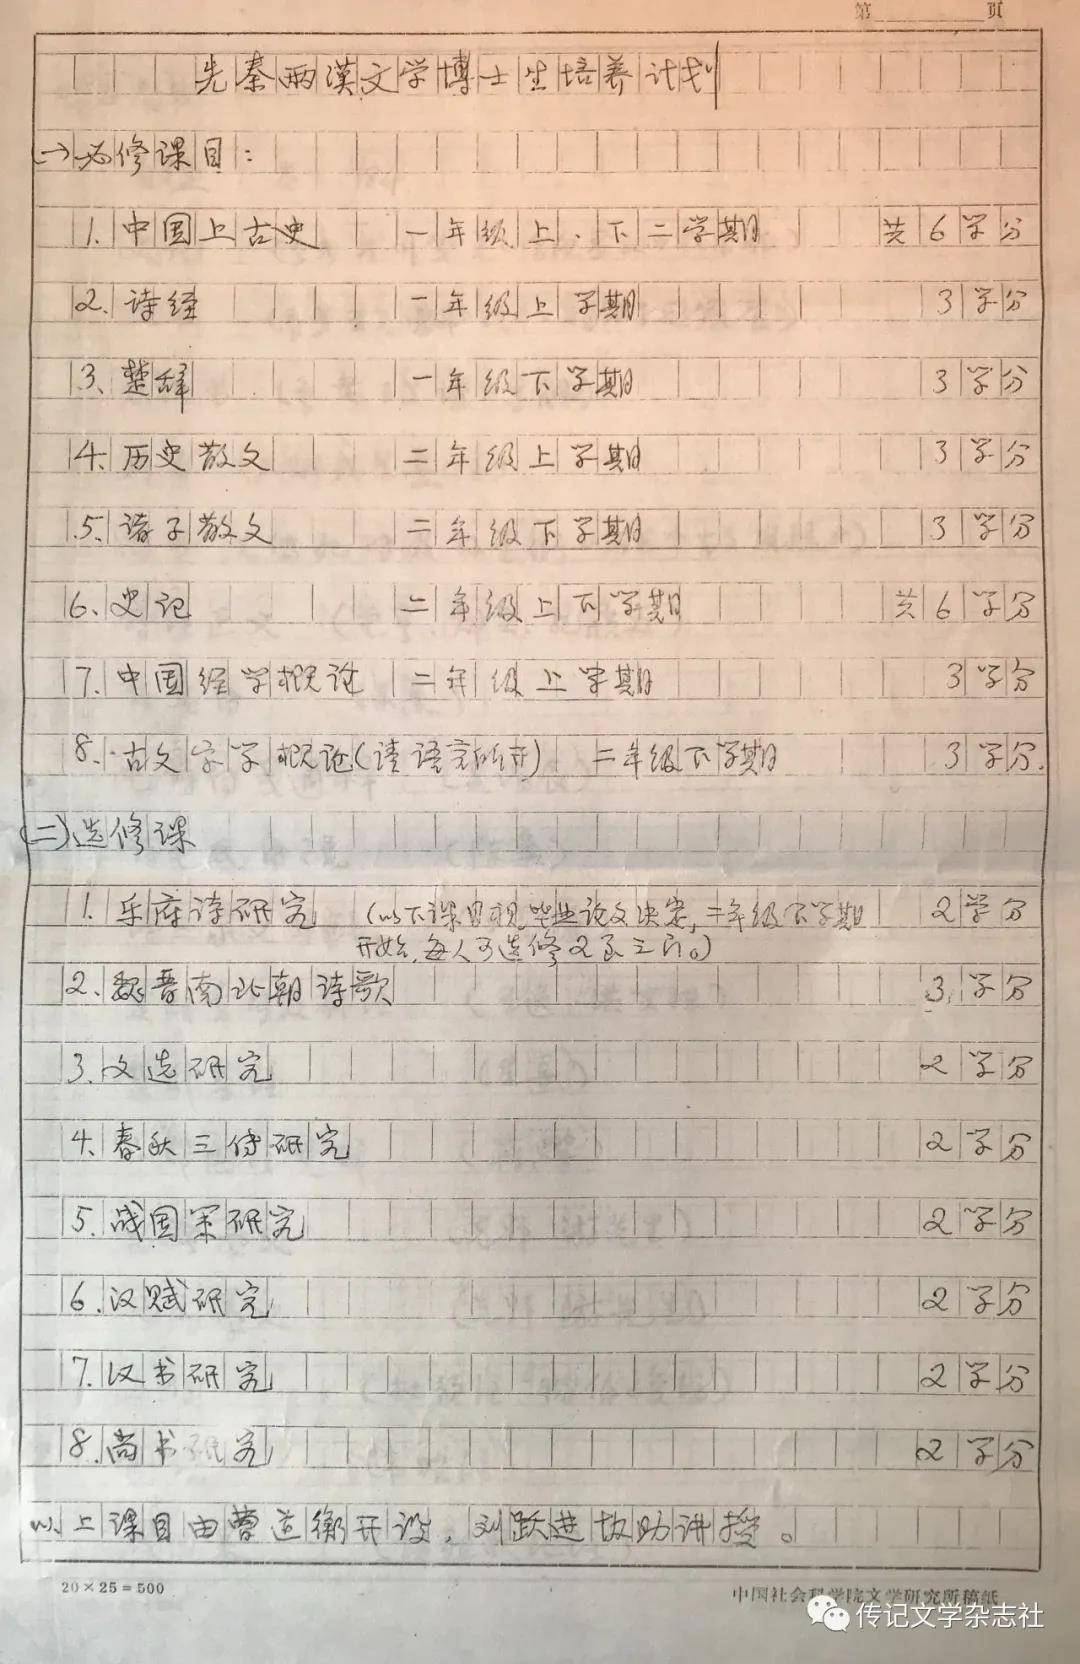 第 页
先秦两漢文学博士生培养计划
(一)必修课目:
1. 中国上古史 一年级上、下二学期 共6学分
2. 诗经 一年级上学期 3学分
3、楚辞 一年级下学期 3学分
4、历史散文 二年级上学期 3学分
5、诸子散文 二年级下学期 3学分
6、史记 二年级上下学期 共6学分
7. 中国经学概论 二年级上学期 3学分
8、古文字学概论(请语言所开) 二年级下学期 3学分.
(二)选修课
1. 乐府诗研究 (以下课目视毕业论文决定,二年级下学期 2学分
开始,每人可选修2至三门。)
2、魏晋南北朝诗歌 3学分
3. 文选研究 2学分
4、春秋三传研究 2学分
5. 战国策研究 2学分
6. 汉赋研究 2学分
7. 汉书研究 2学分
8. 尚书研究 2学分
以上课目由曹道衡开设,刘跃进协助讲授。
20×25=500 中国社会科学院文学研究所稿纸
传记文学杂志社